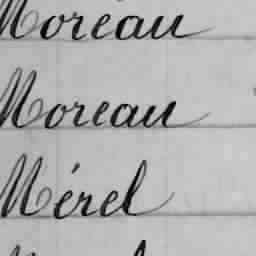 Moreau
Moreau
Mérel